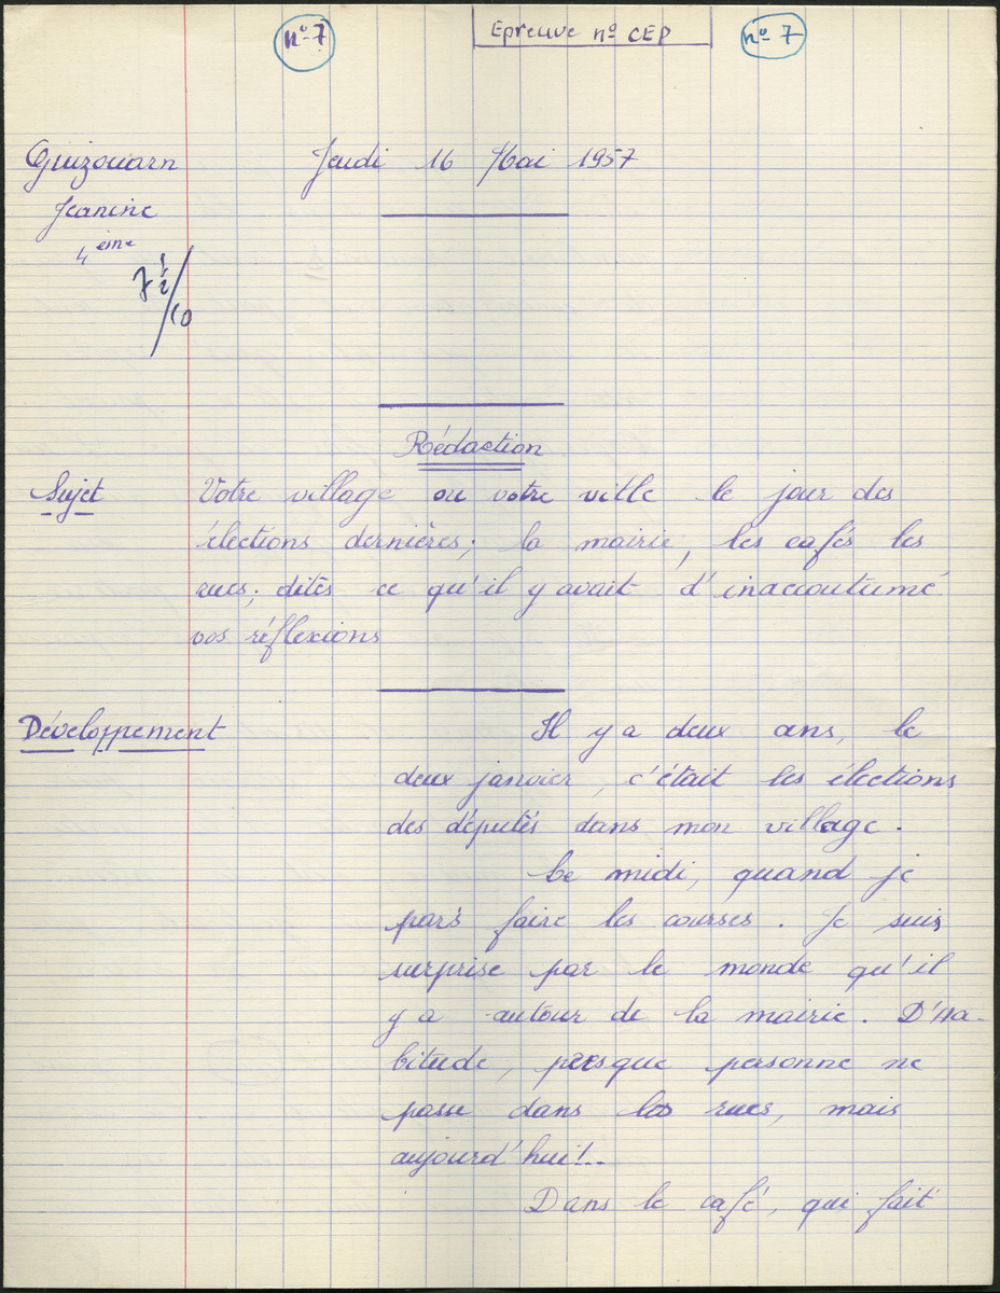 n° 7 Epreuve n° CEP n° 7
Guizouarn Jeudi 16 Mai 1957
Jeanine
4ème
7 1/2/10
Rédaction
Sujet Votre village ou votre ville le jour des
élections dernières; la mairie, les cafés les
rues; dites ce qu'il y avait d'inaccoutumé
vos réflexions
Développement Il y a deux ans, le
deux janvier, c'était les élections
des députés dans mon village.
Le midi, quand je
pars faire les courses. Je suis
surprise par le monde qu'il
y a autour de la mairie. D'Ha-
bitude, presque personne ne
passe dans les rues, mais
aujourd'hui!..
Dans le café, qui fait